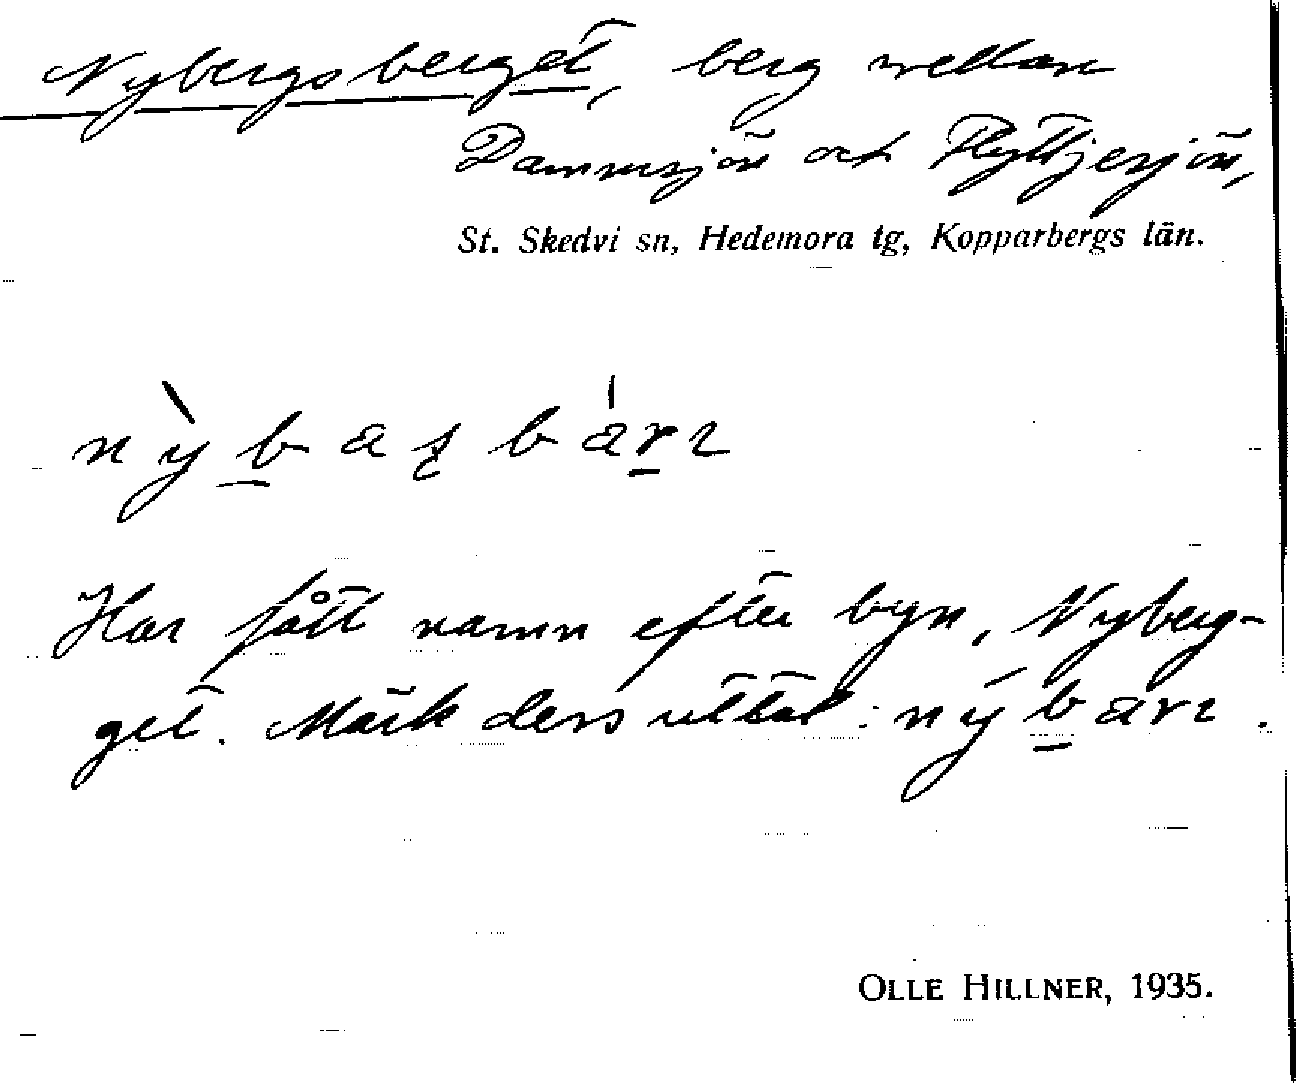 Nybergsberget, berg mellan
Dammsjön och Flyttjesjön,
St. Skedvi sn, Hedemora tg, Kopparbergs län.
Har fått namn efter byn, Nyberg-
get. Märk ders uttal:
OLLE HILLNER, 1935.